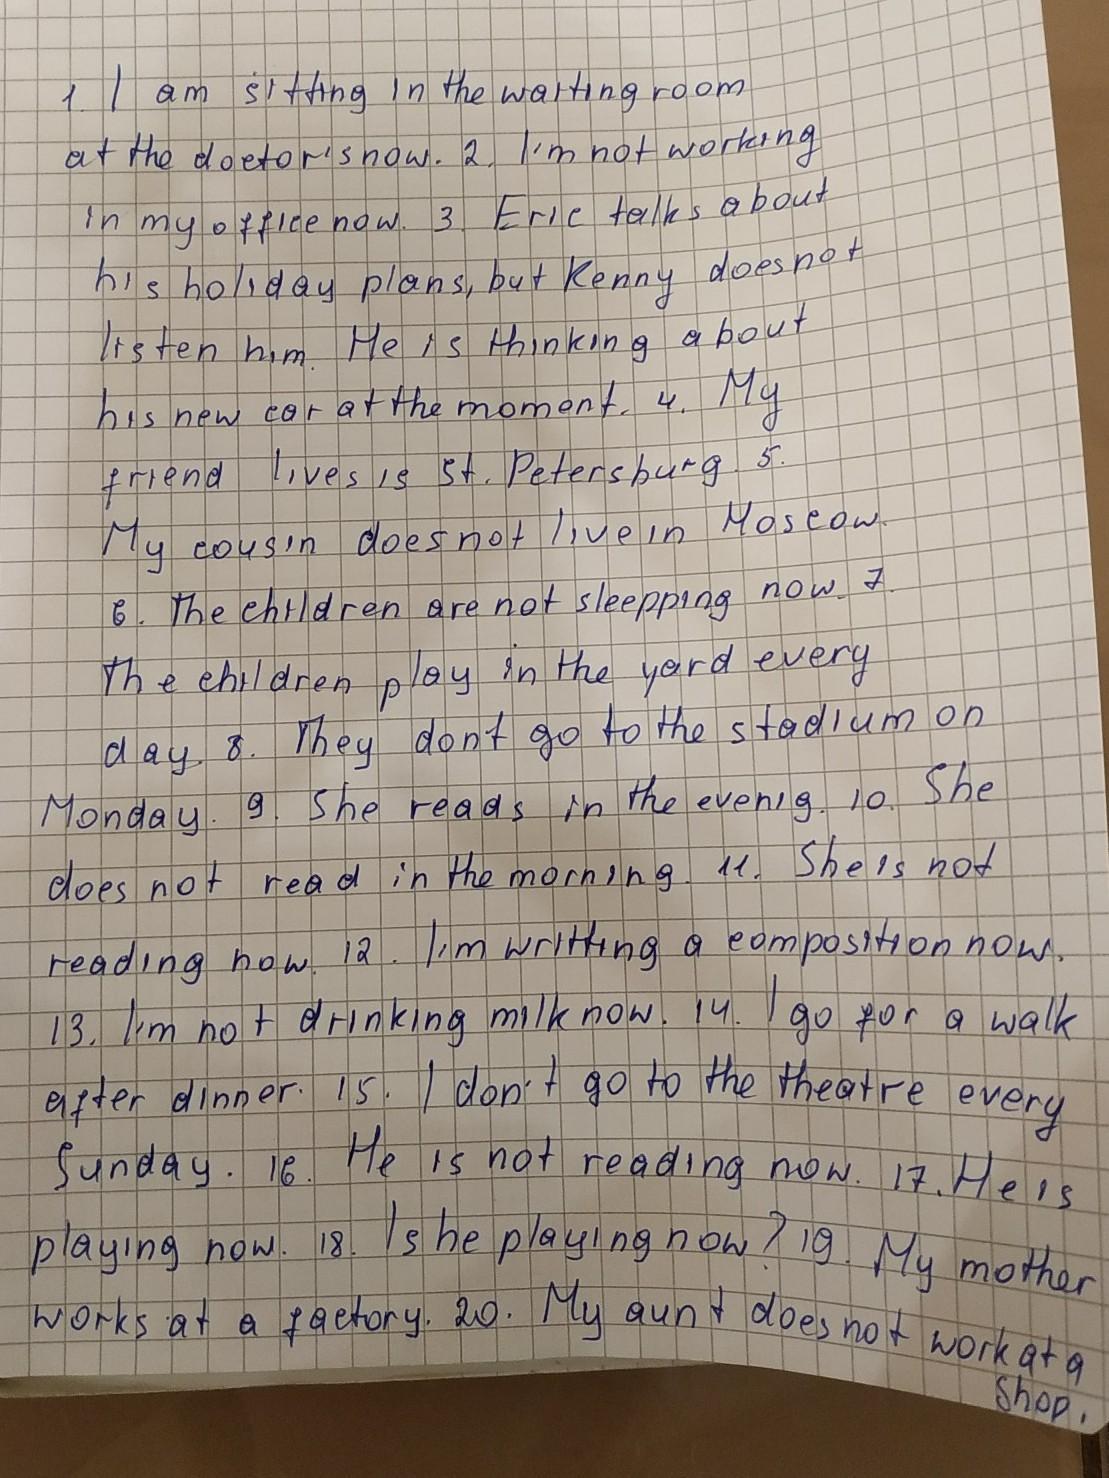 1. I am sitting in the waiting room
at the doctor's now. 2. I'm not working
in my office now. 3. Eric talks about
his holiday plans, but Kenny does not
listen him. He is thinking about
his new car at the moment. 4. My
friend lives is St. Petersburg. 5.
My cousin does not live in Moscow.
6. The children are not sleepping now. 7.
The children play in the yard every
day. 8. They dont go to the stadium on
Monday. 9. She reads in the evenig. 10. She
does not read in the morning. 11. She is not
reading now. 12. I'm writting a composition now.
13. I'm not drinking milk now. 14. I go for a walk
after dinner. 15. I don't go to the theatre every
Sunday. 16. He is not reading now. 17. He is
playing now. 18. Is he playing now? 19. My mother
works at a factory. 20. My aunt does not work at a
shop.